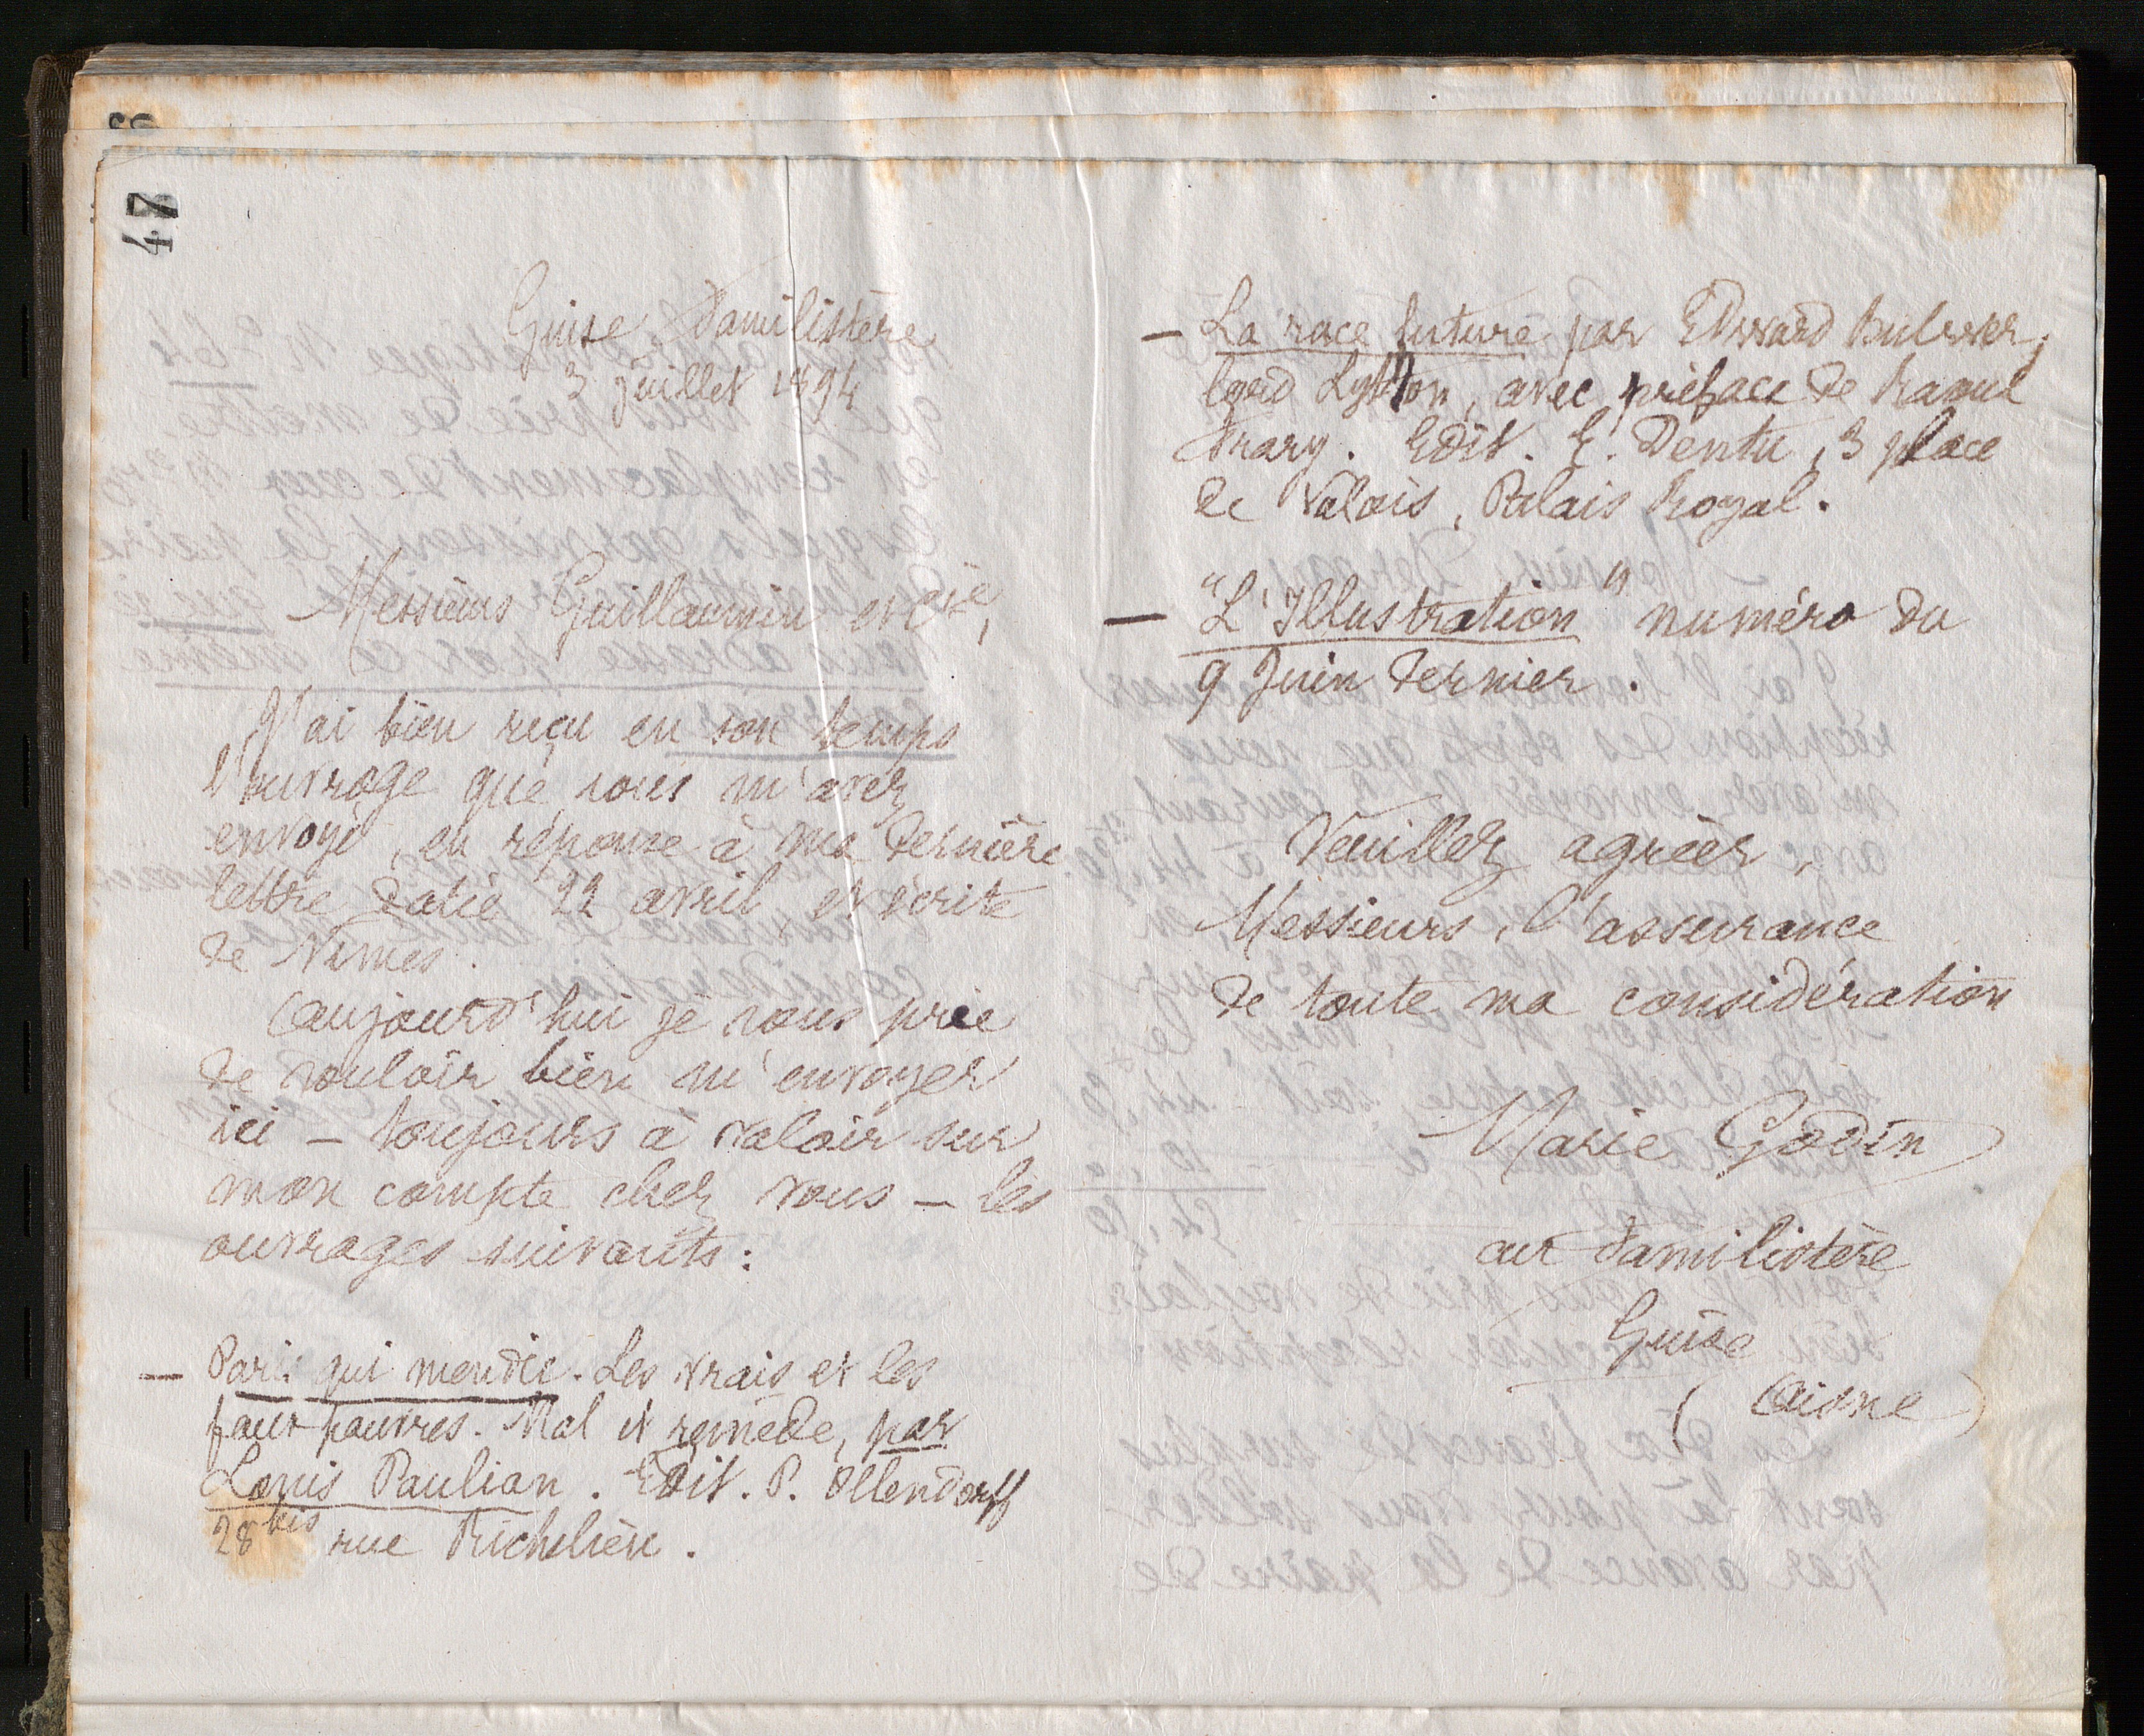 47
Guise Familistère
3 juillet 1894
Messieurs Guillaumin et Cie,
J'ai bien reçu en son temps
l'ouvrage que vous m'avez
envoyé, en réponse à ma dernière
lettre datée 22 avril et écrite
de Nimes.
Aujourd'hui je vous prie
de vouloir bien m'envoyer
ici – toujours à valoir sur
mon compte chez vous – les
ouvrages suivants :
– Paris qui mendie. Les vrais et les
faux pauvres. Mal et remède, par
Louis Paulian. Edit. P. Ollendorff
28 bis rue Richelieu.
– La race future par Edward Bulwer,
lord Lytton, avec préface de Raoul
Frary. Edit. E. Dentu, 3 place
de Valois, Palais Royal.
– "L'Illustration" numéro du
9 Juin dernier.
Veuillez agréer,
Messieurs, l'assurance
de toute ma considération
Marie Godin
au Familistère
Guise
(Aisne)